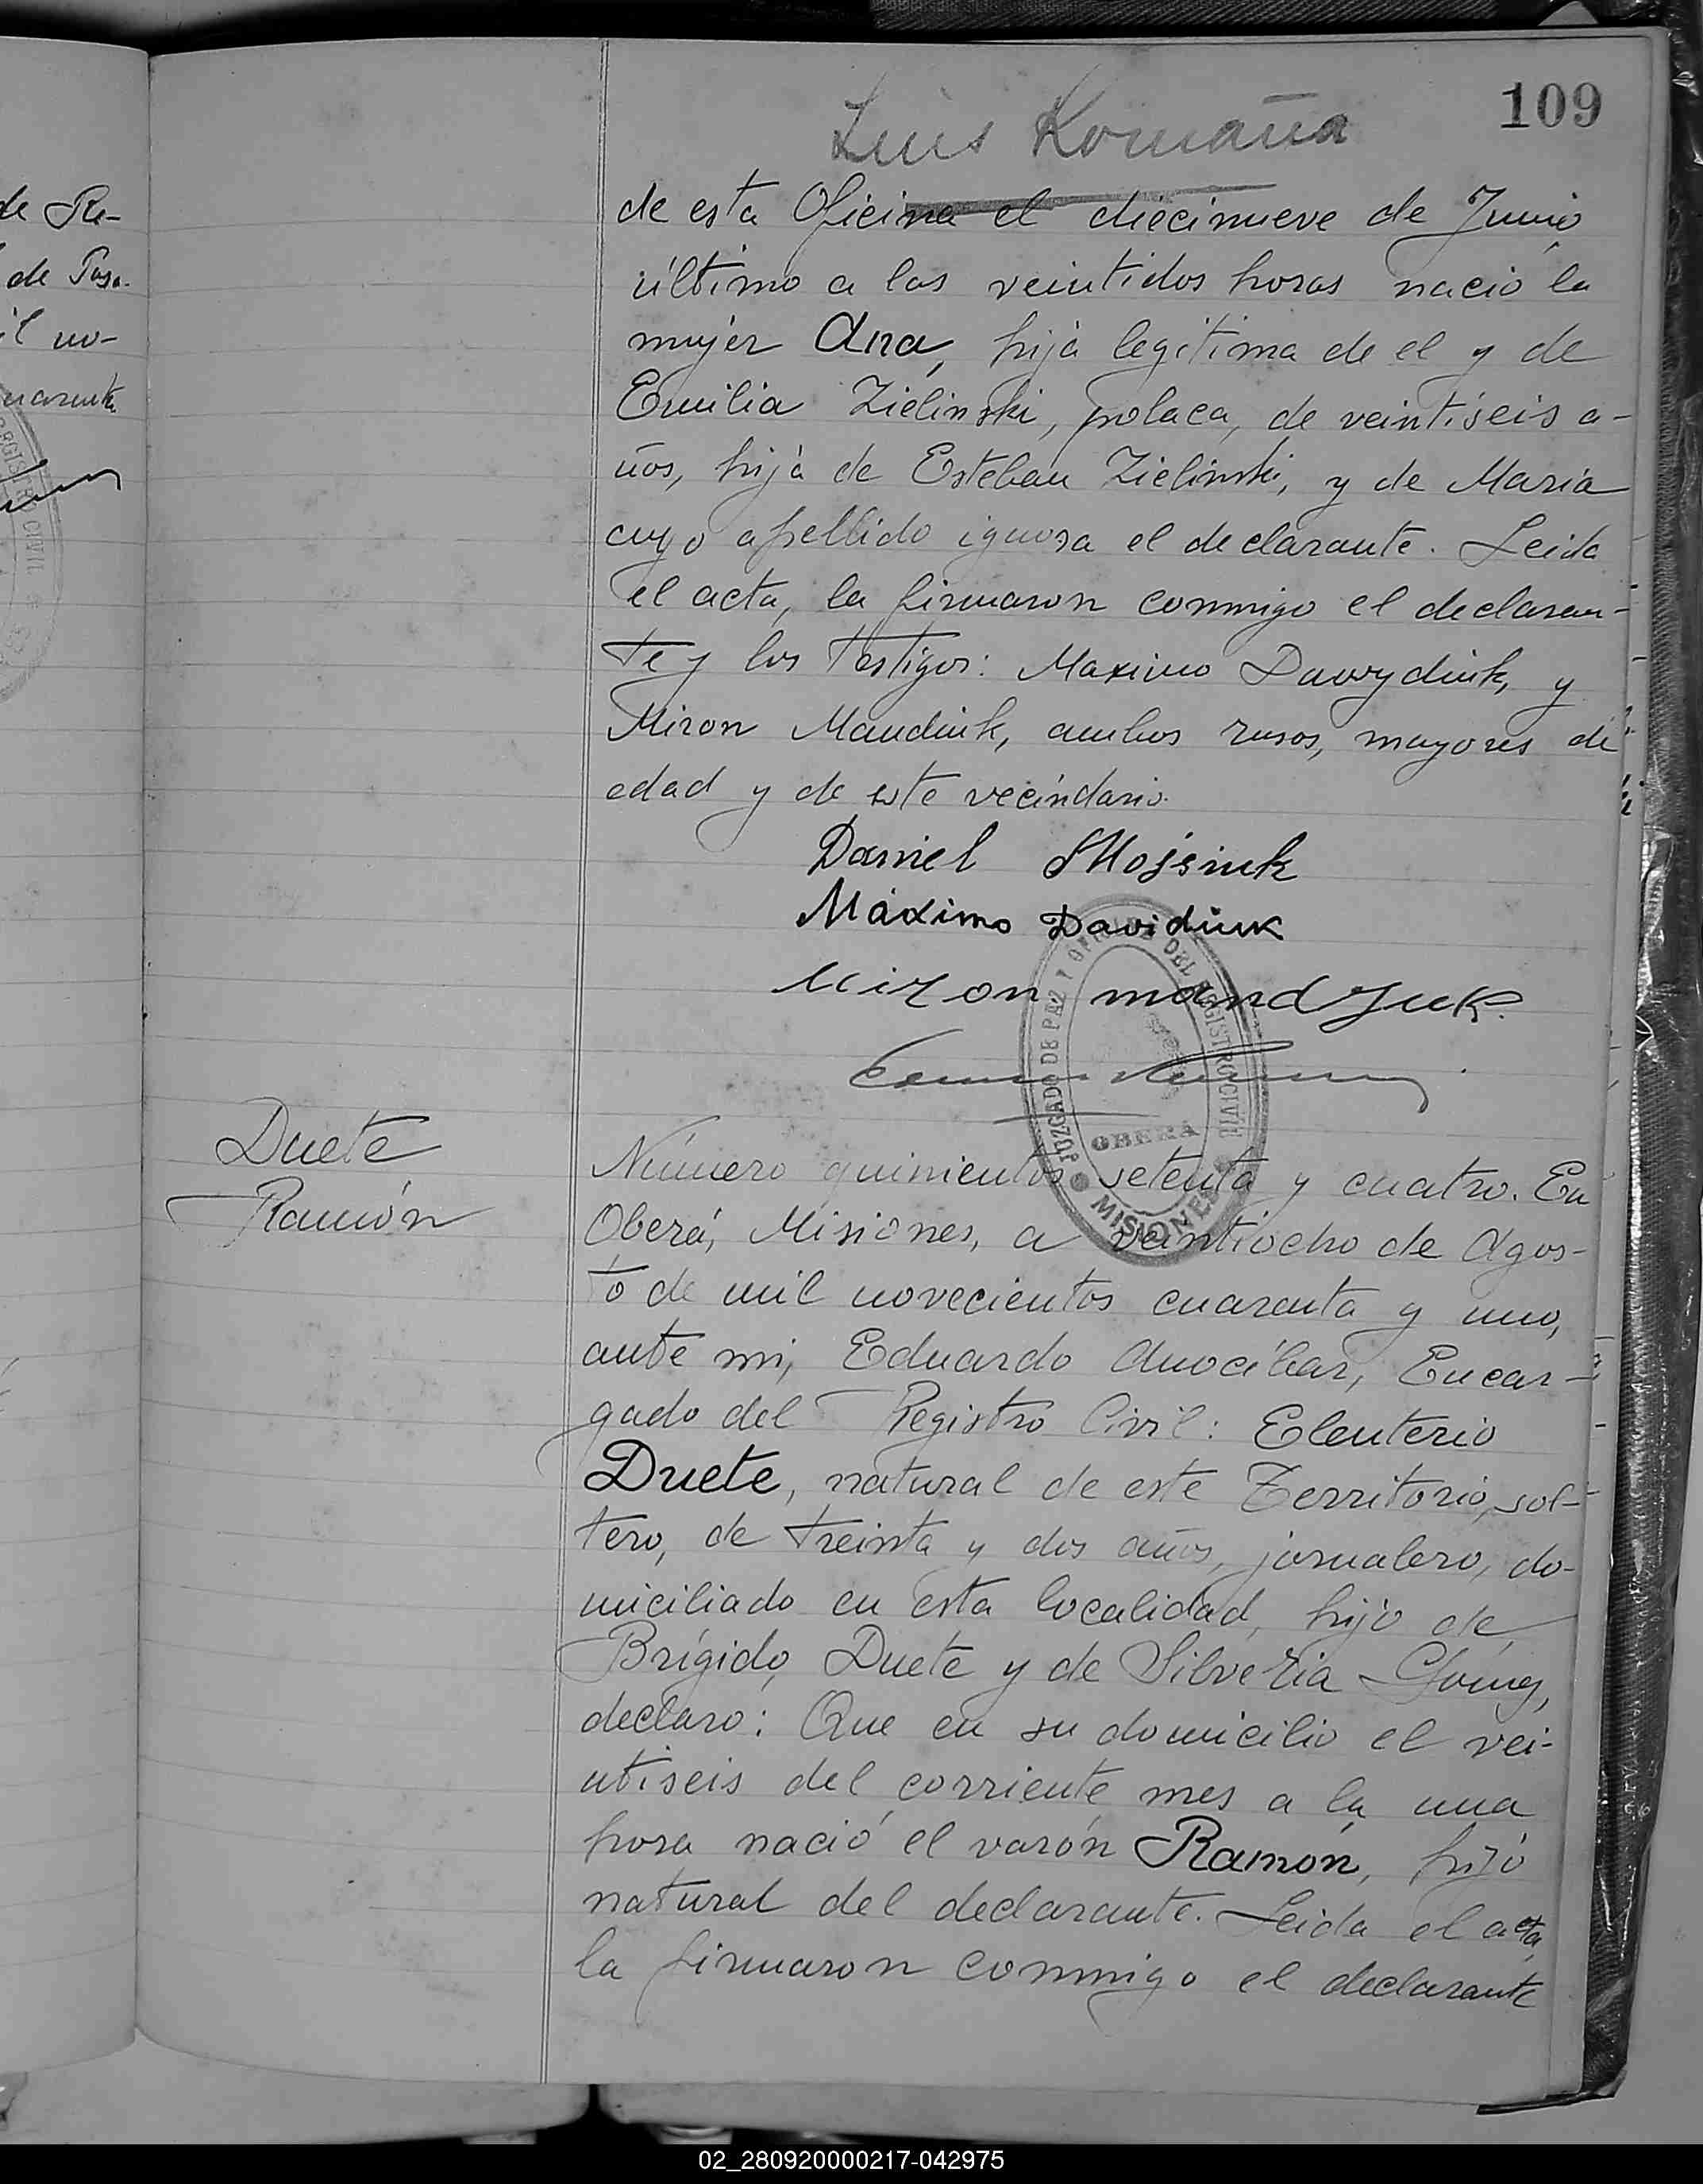 109
Luis Romaña
de esta Oficina el diecinueve de Junio
último a las veintidos horas nació la
mujer Ana, hija legitima de el y de
Emilia Zielinski, polaca, de veintiseis a-
ños, hija de Esteban Zielinski, y de Maria
cuyo apellido ignora el declarante. Leida
el acta, la firmaron conmigo el declaran-
te y los testigos: Maximo Dawydiuk, y
Miron Mandiuk, ambos rusos, mayores de
edad y de este vecindario.
Daniel
Máximo Davidiuk
Miron mandJuk.
JUZGADO DE PAZ Y OFICINA DEL REGISTRO CIVIL
OBERÁ
MISIONES
Duete
Ramón
Número quinientos setenta y cuatro. En
Oberá, Misiones, a veintiocho de Agos-
to de mil novecientos cuarenta y uno,
ante mi, Eduardo Anocíbar, Encar-
gado del Registro Civil: Eleuterio
Duete, natural de este Territorio, sol-
tero, de treinta y dos años, jornalero, do-
miciliado en esta localidad, hijo de
Brígido Duete y de Silveria Gómez,
declaro: Que en su domicilio el vei-
ntiseis del corriente mes a la una
hora nació el varón Ramón, hijo
natural del declarante. Leida el acta,
la firmaron conmigo el declarante
de Re-
de Posa-
il no-
uarenta
REGISTRO CIVIL
02_280920000217-042975